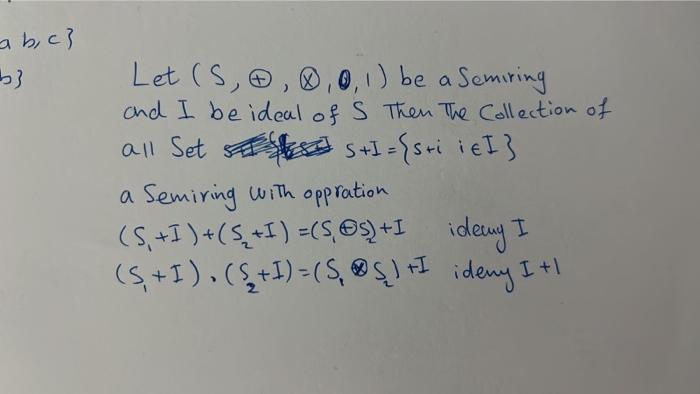 a b, c}
b}
Let (S, ⊕, ⊗, 0, 1) be a Semiring
and I be ideal of S Then The Collection of
all Set s+I = {s+i i∈I}
a Semiring with oppration
(S₁+I)+(S₂+I)=(S₁⊕S₂)+I ideny I
(S₁+I).(S₂+I)=(S₁⊗S₂)+I ideny I+1